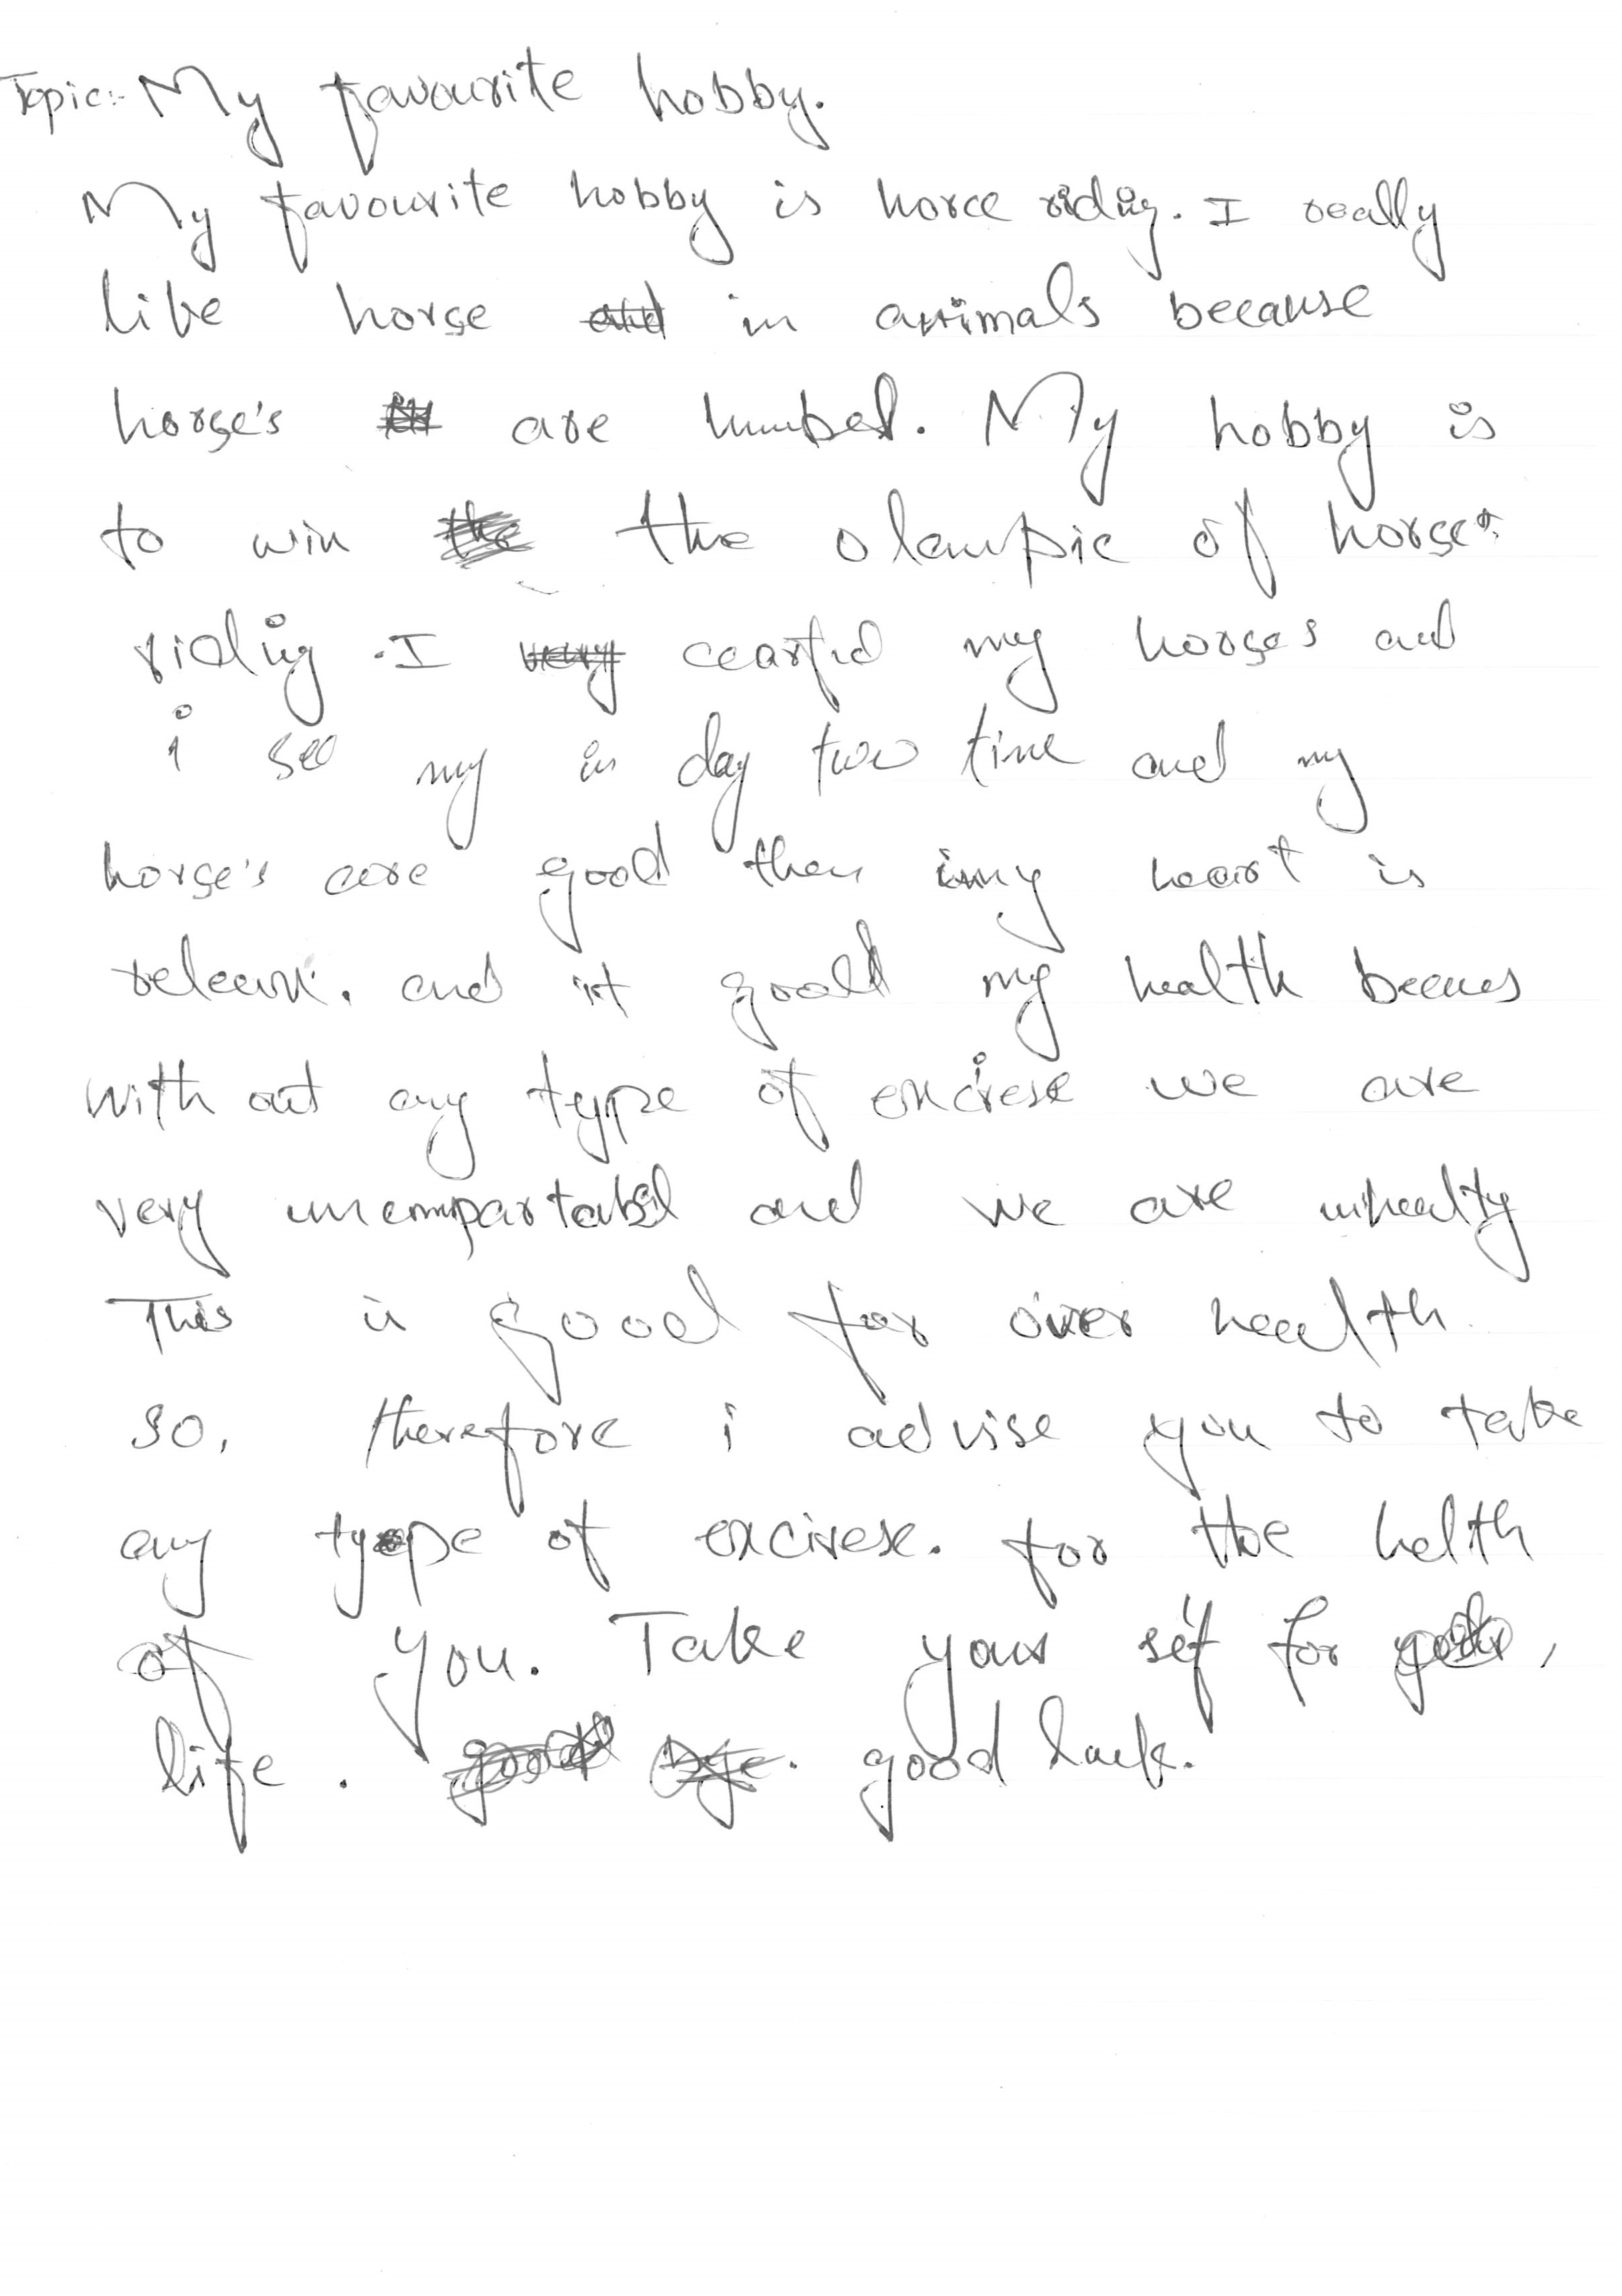 Topic:- My favourite hobby.
My favourite hobby is horce riding. I really
like horse in animals because
horse's are humbel. My hobby is
to win the olampic of horse
riding. I cearful my horses and
i see my in day two time and my
horse's are good then my heart is
releax. and it good my health becues
with out any type of excirese we are
very uncompartabel and we are unhealty
This is good for over health
so, therefore i advise you to take
any type of excirese. for the helth
of you. Take your self for
life. good luck.